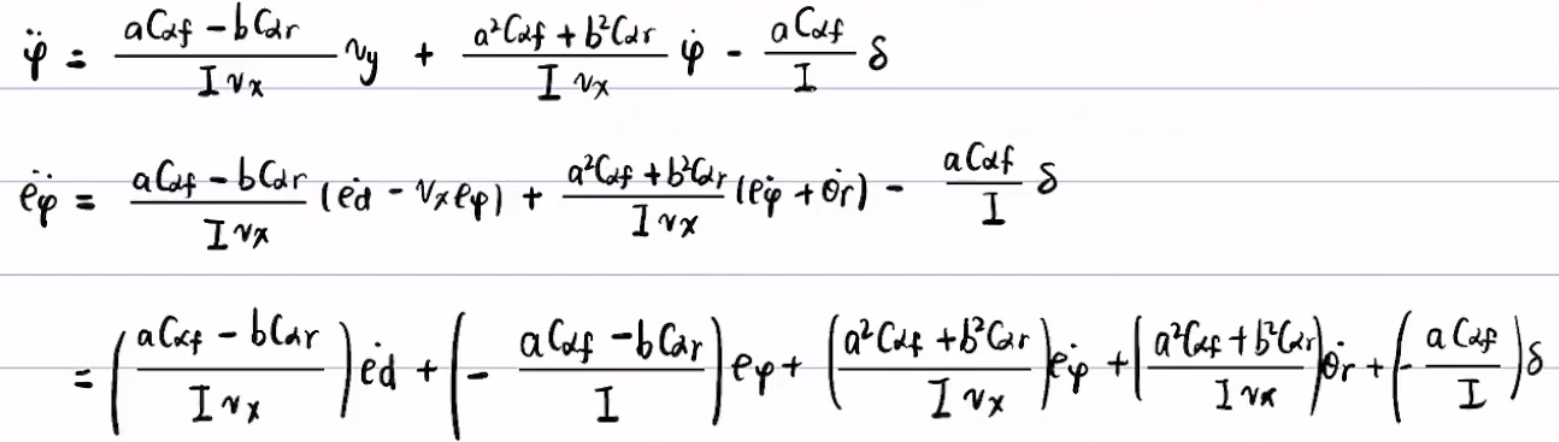 φ̈ = (aCαf − bCαr)/(I vx) vy + (a²Cαf + b²Cαr)/(I vx) φ̇ − (aCαf)/I δ
ëφ = (aCαf − bCαr)/(I vx) (ėd − vx eφ) + (a²Cαf + b²Cαr)/(I vx) (ėφ + θ̇r) − (aCαf)/I δ
= ((aCαf − bCαr)/(I vx)) ėd + (− (aCαf − bCαr)/I) eφ + ((a²Cαf + b²Cαr)/(I vx)) ėφ + ((a²Cαf + b²Cαr)/(I vx)) θ̇r + (− (aCαf)/I) δ